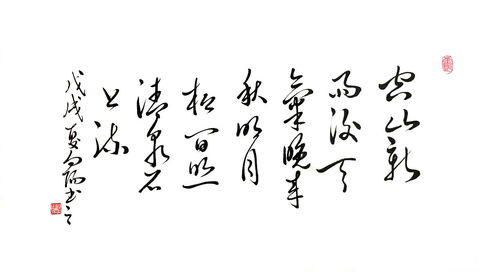 空山新
雨後天
氣晚來
秋明月
松間照
清泉石
上流
戊戌夏向陽書之